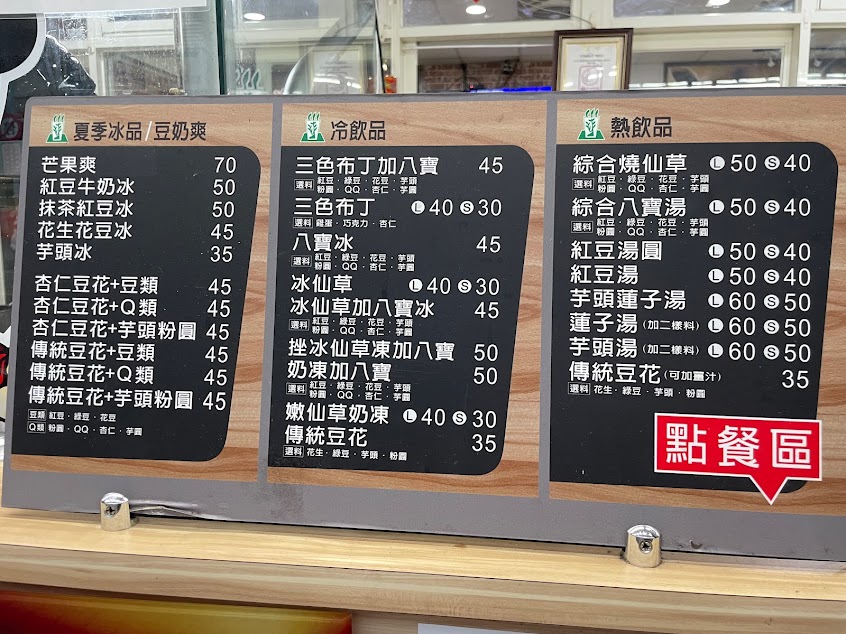 夏季冰品/豆奶爽
芒果爽 70
紅豆牛奶冰 50
抹茶紅豆冰 50
花生花豆冰 45
芋頭冰 35
杏仁豆花+豆類 45
杏仁豆花+Q類 45
杏仁豆花+芋頭粉圓 45
傳統豆花+豆類 45
傳統豆花+Q類 45
傳統豆花+芋頭粉圓 45
豆類 紅豆·綠豆·花豆
Q類 粉圓·QQ·杏仁·芋圓
冷飲品
三色布丁加八寶 45
選料 紅豆·綠豆·花豆·芋頭
粉圓·QQ·杏仁·芋圓
三色布丁 L 40 S 30
選料 雞蛋·巧克力·杏仁
八寶冰 45
選料 紅豆·綠豆·花豆·芋頭
粉圓·QQ·杏仁·芋圓
冰仙草 L 40 S 30
冰仙草加八寶冰 45
選料 紅豆·綠豆·花豆·芋頭
粉圓·QQ·杏仁·芋圓
挫冰仙草凍加八寶 50
奶凍加八寶 50
選料 紅豆·綠豆·花豆·芋頭
粉圓·QQ·杏仁·芋圓
嫩仙草奶凍 L 40 S 30
傳統豆花 35
選料 花生·綠豆·芋頭·粉圓
熱飲品
綜合燒仙草 L 50 S 40
選料 紅豆·綠豆·花豆·芋頭
粉圓·QQ·杏仁·芋圓
綜合八寶湯 L 50 S 40
選料 紅豆·綠豆·花豆·芋頭
粉圓·QQ·杏仁·芋圓
紅豆湯圓 L 50 S 40
紅豆湯 L 50 S 40
芋頭蓮子湯 L 60 S 50
蓮子湯(加二樣料) L 60 S 50
芋頭湯(加二樣料) L 60 S 50
傳統豆花(可加薑汁) 35
選料 花生·綠豆·芋頭·粉圓
點餐區